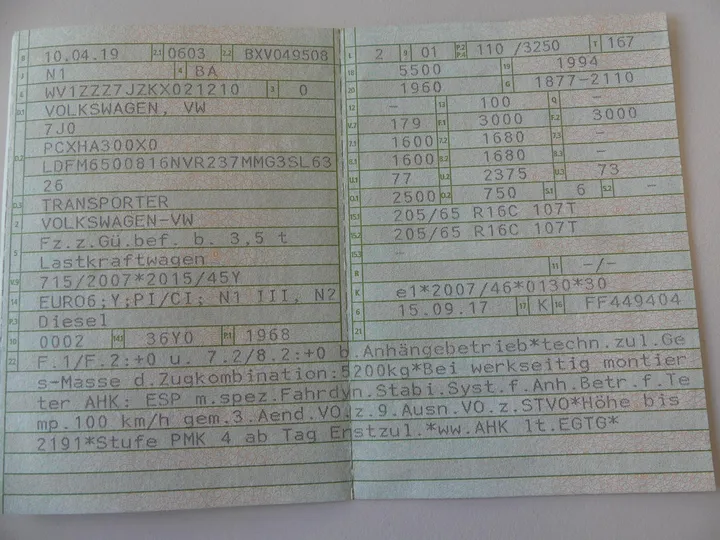 B 10.04.19 2.1 0603 2.2 BXV049508
J N1 4 BA
E WV1ZZZ7JZKX021210 3 0
D.1 VOLKSWAGEN, VW
7J0
PCXHA300X0
D.2 LDFM6500816NVR237MMG3SL63
26
D.3 TRANSPORTER
2 VOLKSWAGEN-VW
5 Fz.z.Gü.bef. b. 3,5 t
Lastkraftwagen
V.9 715/2007*2015/45Y
14 EURO6;Y;PI/CI; N1 III, N2
P.3 Diesel
10 0002 14.1 36Y0 P.1 1968
L 2 9 01 P.2 P.4 110 /3250 T 167
18 5500 19 1994
20 1960 G 1877-2110
12 - 13 100 Q -
V.7 179 F.1 3000 F.2 3000
7.1 1600 7.2 1680 7.3 -
8.1 1600 8.2 1680 8.3 -
U.1 77 U.2 2375 U.3 73
O.1 2500 O.2 750 S.1 6 S.2 -
15.1 205/65 R16C 107T
15.2 205/65 R16C 107T
15.3 -
R 11 -/-
K e1*2007/46*0130*30
6 15.09.17 17 K 16 FF449404
21
22 F.1/F.2:+0 u. 7.2/8.2:+0 b.Anhängebetrieb*techn.zul.Ge
s-Masse d.Zugkombination:5200kg*Bei werkseitig montier
ter AHK: ESP m.spez.Fahrdyn.Stabi.Syst.f.Anh.Betr.f.Te
mp.100 km/h gem.3.Aend.VO.z.9.Ausn.VO.z.STVO*Höhe bis
2191*Stufe PMK 4 ab Tag Erstzul.*ww.AHK lt.EGTG*